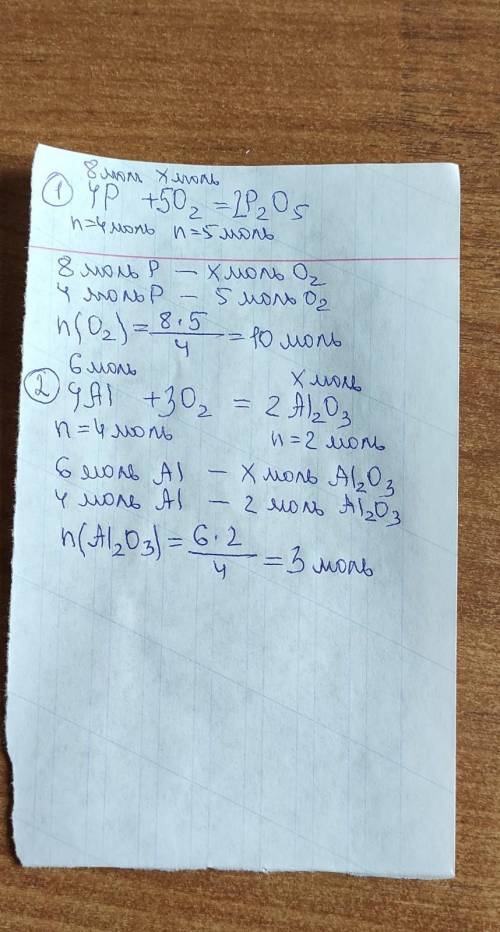 8 мол x моль
① 4P + 5O₂ = 2P₂O₅
n=4 моль n=5 моль
8 моль P — x моль O₂
4 моль P — 5 моль O₂
n(O₂) = 8·5/4 = 10 моль
6 моль x моль
② 4Al + 3O₂ = 2Al₂O₃
n=4 моль n=2 моль
6 моль Al — x моль Al₂O₃
4 моль Al — 2 моль Al₂O₃
n(Al₂O₃) = 6·2/4 = 3 моль